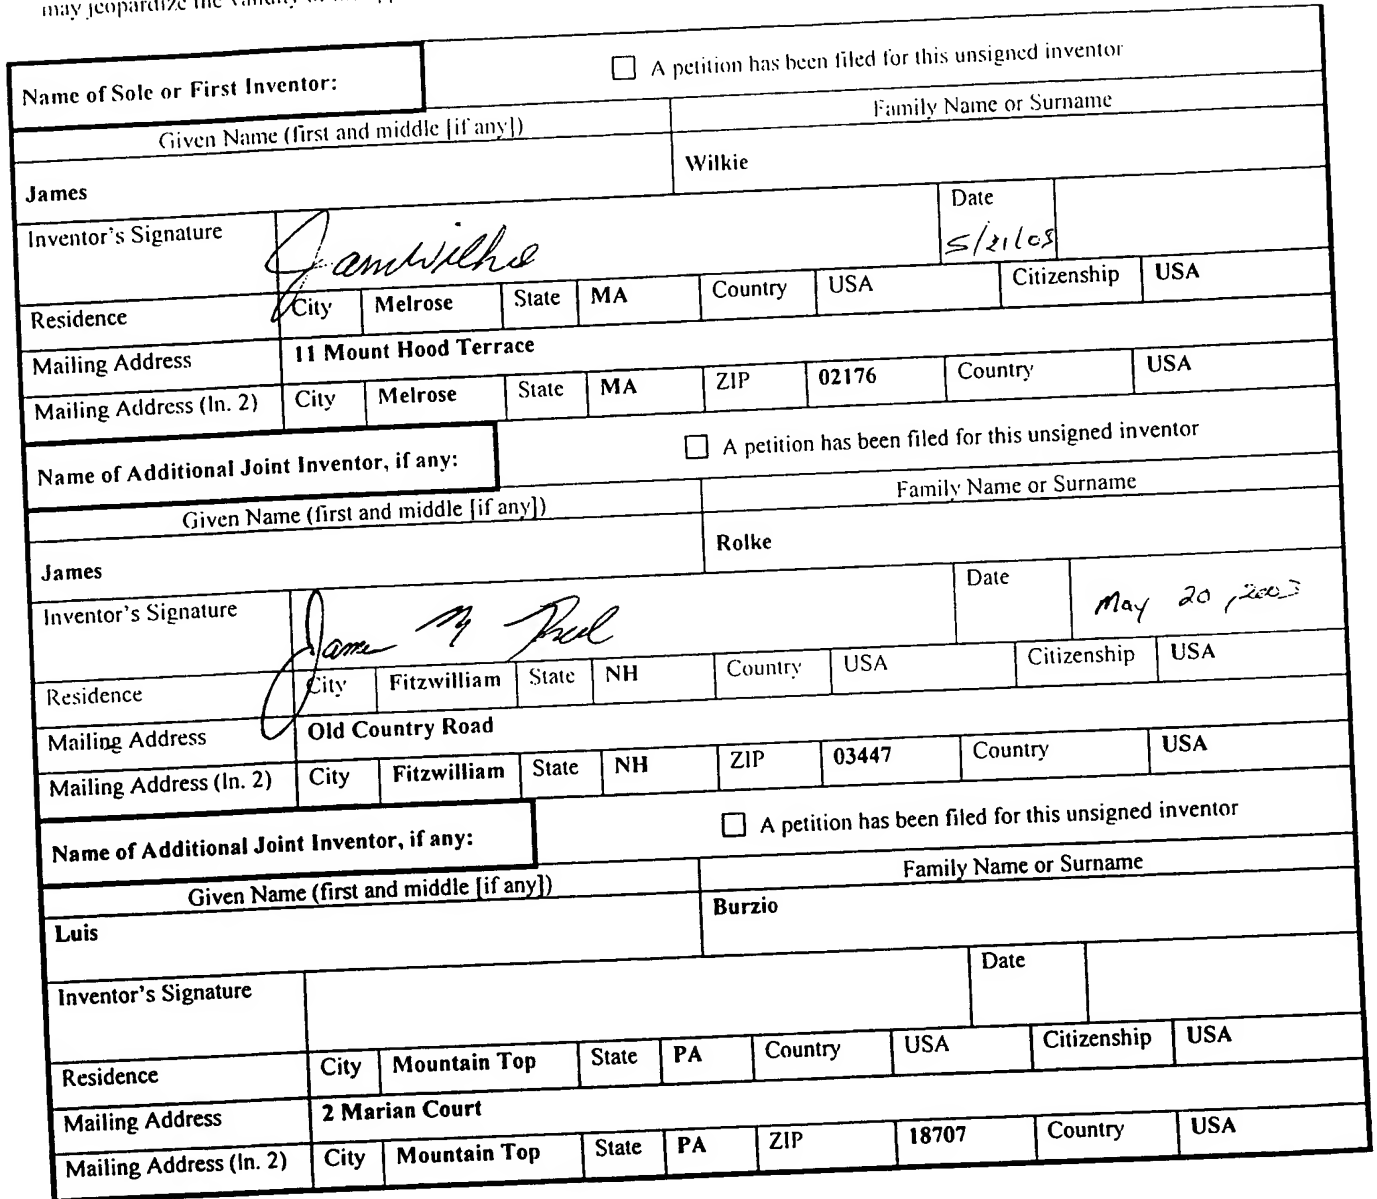 may jeopardize the validity of
Name of Sole or First Inventor: ☐ A petition has been filed for this unsigned inventor
Given Name (first and middle [if any]) Family Name or Surname
James Wilkie
Inventor's Signature James Wilkie Date 5/21/03
Residence City Melrose State MA Country USA Citizenship USA
Mailing Address 11 Mount Hood Terrace
Mailing Address (ln. 2) City Melrose State MA ZIP 02176 Country USA
Name of Additional Joint Inventor, if any: ☐ A petition has been filed for this unsigned inventor
Given Name (first and middle [if any]) Family Name or Surname
James Rolke
Inventor's Signature James M Date May 20, 2003
Residence City Fitzwilliam State NH Country USA Citizenship USA
Mailing Address Old Country Road
Mailing Address (ln. 2) City Fitzwilliam State NH ZIP 03447 Country USA
Name of Additional Joint Inventor, if any: ☐ A petition has been filed for this unsigned inventor
Given Name (first and middle [if any]) Family Name or Surname
Luis Burzio
Inventor's Signature Date
Residence City Mountain Top State PA Country USA Citizenship USA
Mailing Address 2 Marian Court
Mailing Address (ln. 2) City Mountain Top State PA ZIP 18707 Country USA